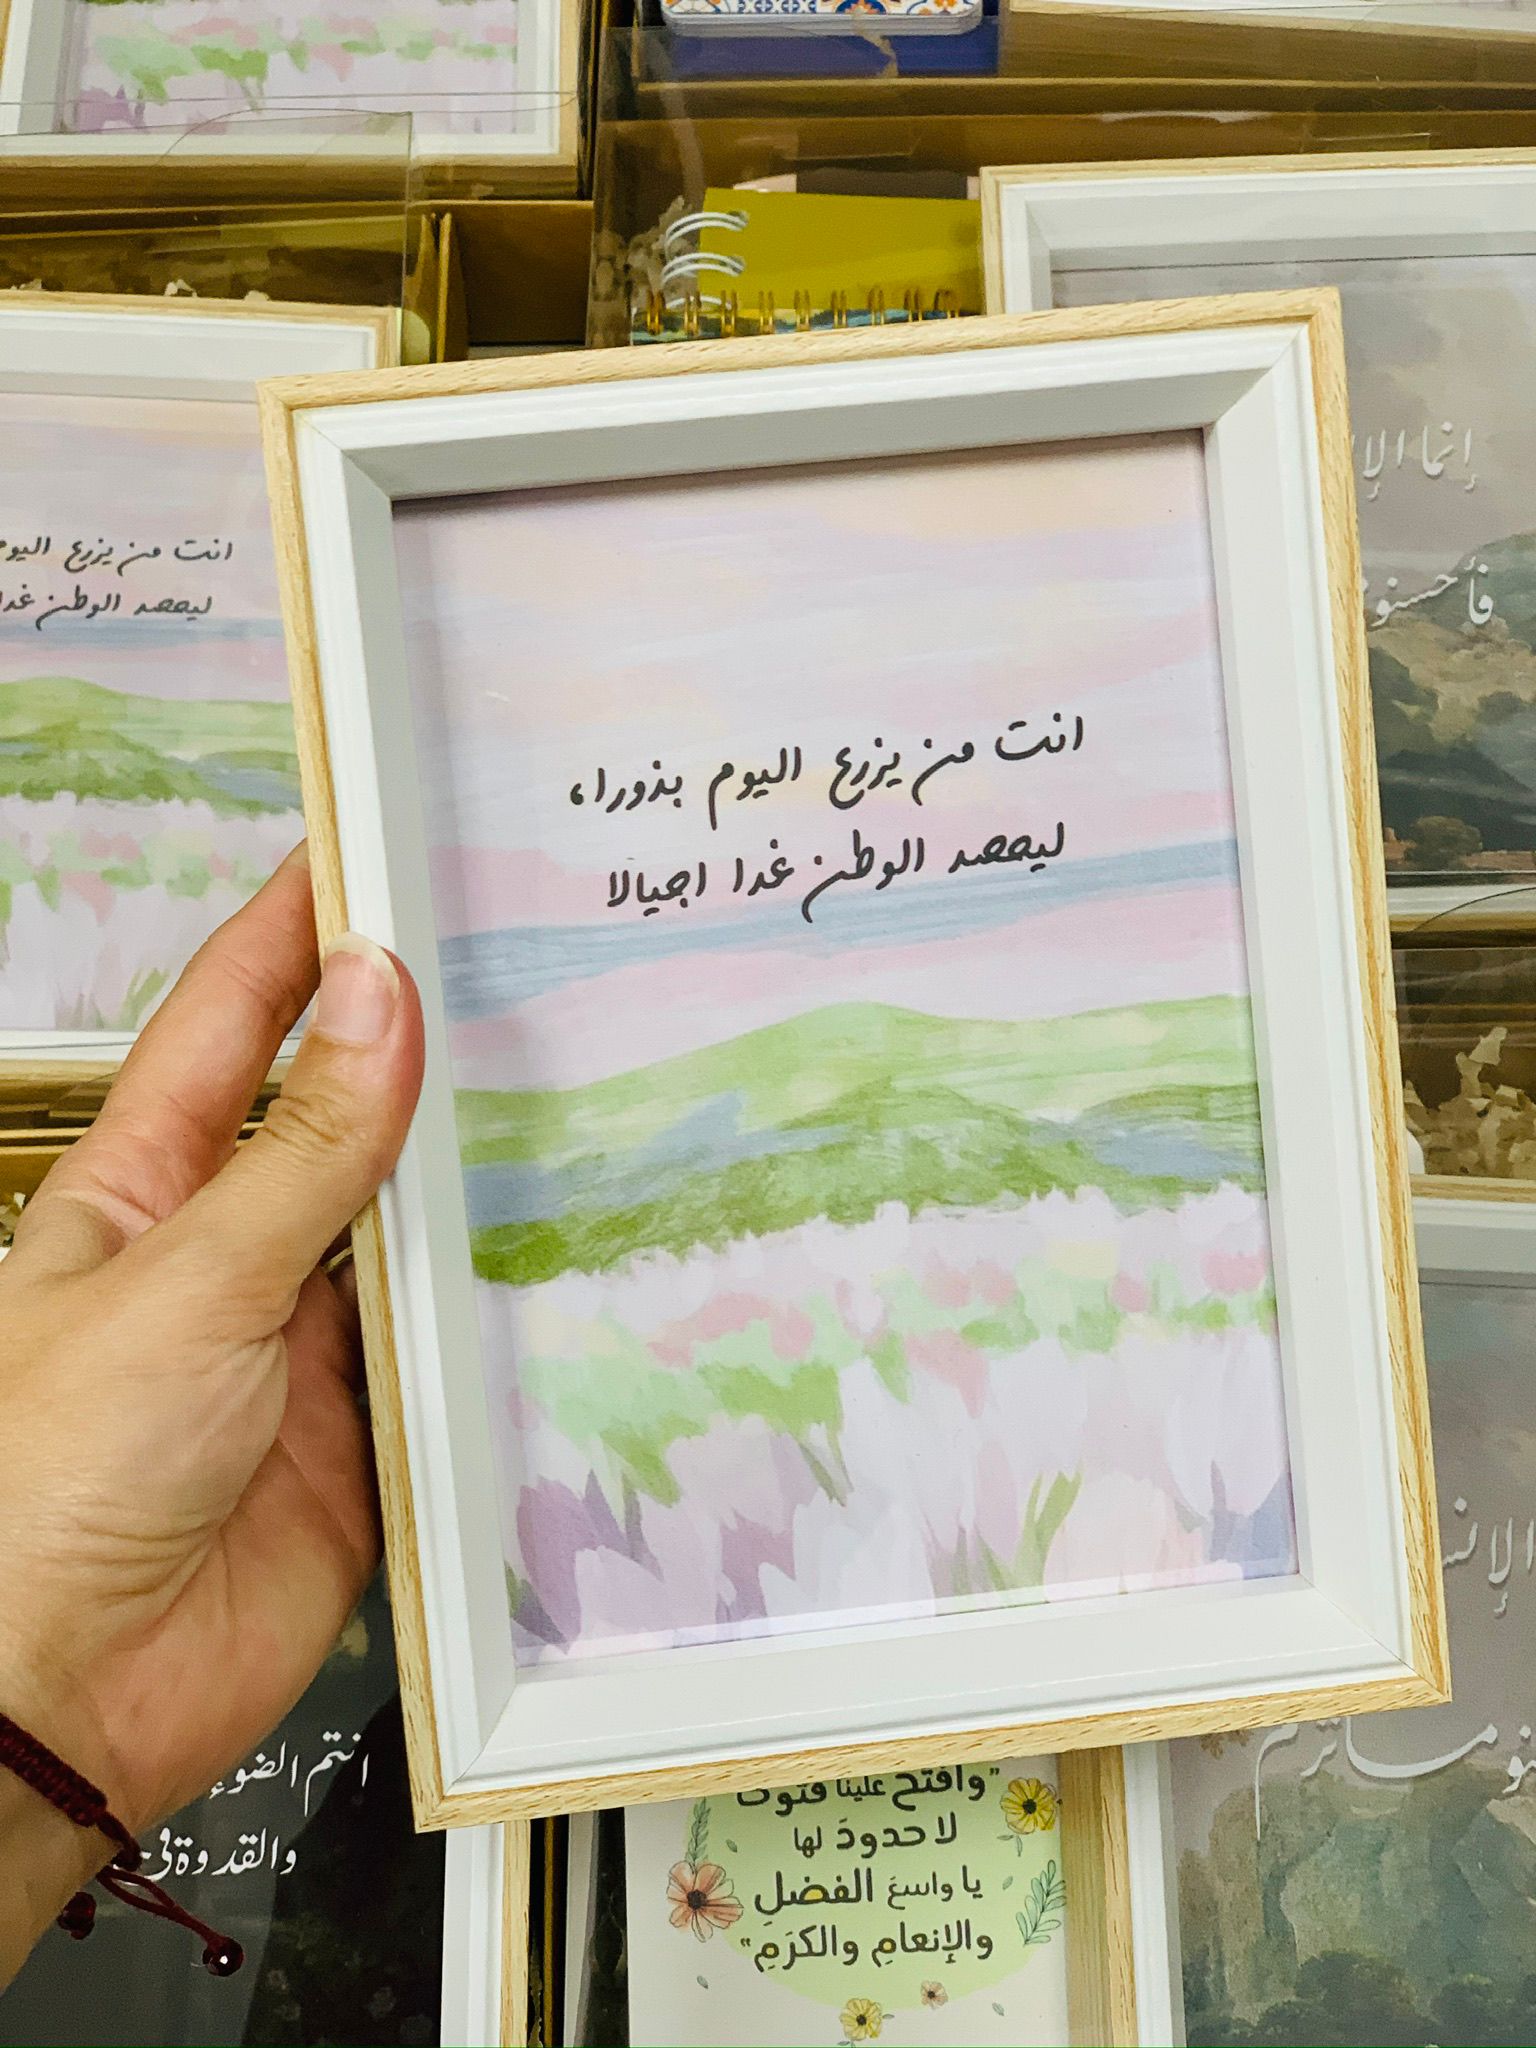 انت من يزرع اليوم بذورا،
ليحصد الوطن غدا اجيالا
انت من يزرع اليوم
ليحصد الوطن غدا
إنما
فأحسنوا
انتم الضوء
والقدوة في
"وافتح علينا فتوحًا
لا حدودَ لها
يا واسعَ الفضلِ
والإنعامِ والكرَمِ"